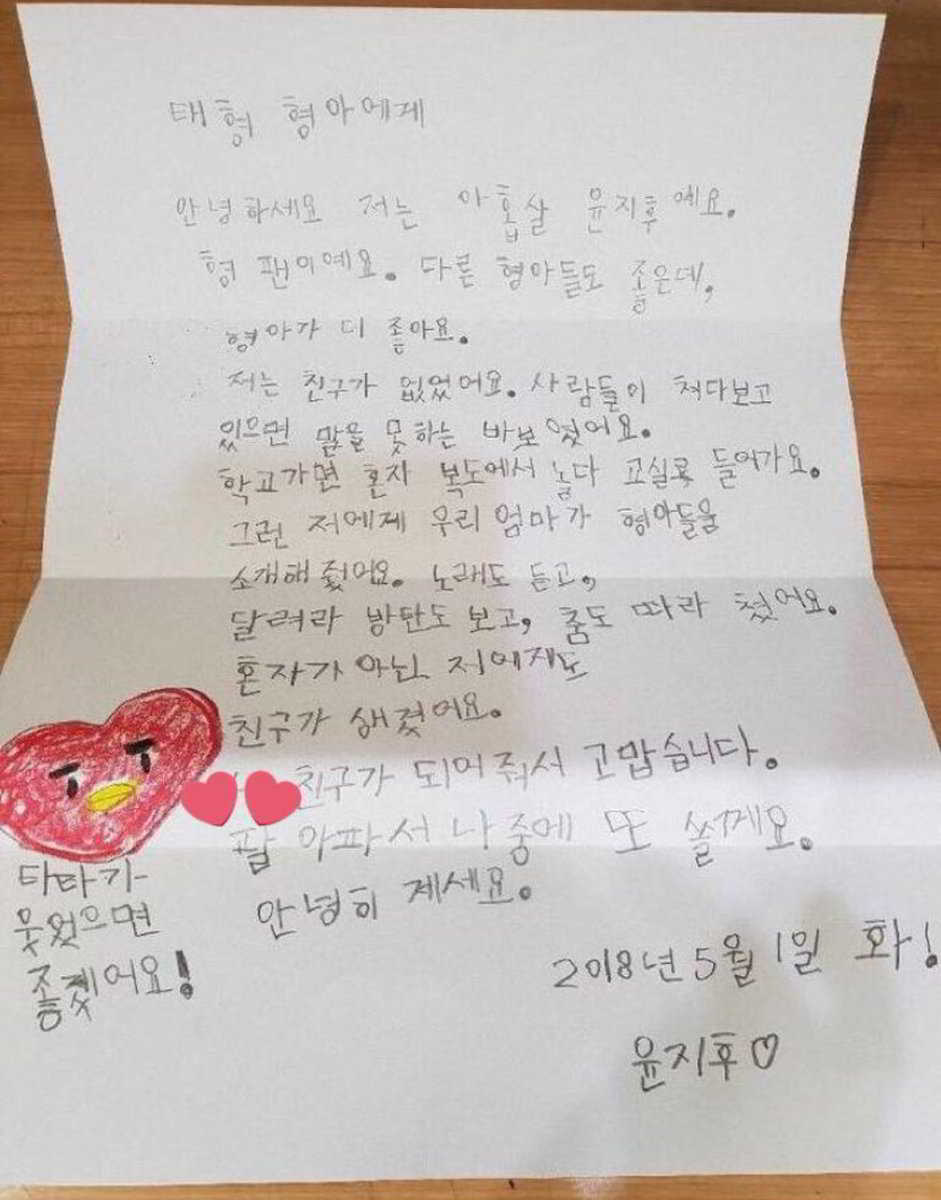 태형 형아에게
안녕하세요 저는 아홉살 윤지후예요.
형 팬이예요. 다른 형아들도 좋은데,
형아가 더 좋아요.
저는 친구가 없었어요. 사람들이 쳐다보고
있으면 말을 못하는 바보였어요.
학교가면 혼자 복도에서 놀다 교실로 들어가요.
그런 저에게 우리 엄마가 형아들을
소개해 줬어요. 노래도 듣고,
달려라 방탄도 보고, 춤도 따라 췄어요.
혼자가 아닌 저에게도
친구가 생겼어요.
친구가 되어줘서 고맙습니다.
팔 아파서 나중에 또 쓸게요.
안녕히 계세요.
타타가
웃었으면
좋겠어요!
2018년 5월 1일 화!
윤지후♡